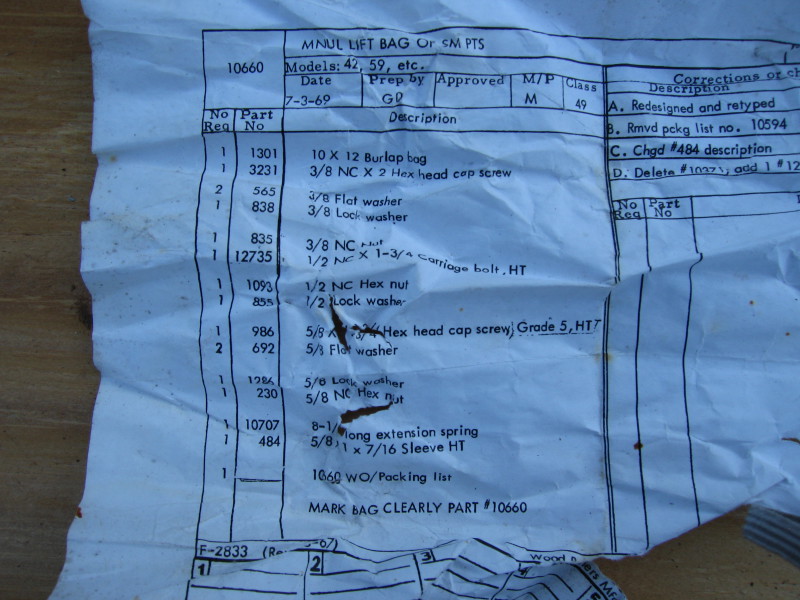 10660
MNUL LIFT BAG Of SM PTS
Models: 42, 59, etc.
Date Prep by Approved M/P Class
7-3-69 GD M 49
No Req Part No Description
1 1301 10 X 12 Burlap bag
1 3231 3/8 NC X 2 Hex head cap screw
2 565 3/8 Flat washer
1 838 3/8 Lock washer
1 835 3/8 NC Nut
1 12735 1/2 NC X 1-3/4 Carriage bolt, HT
1 1093 1/2 NC Hex nut
1 855 1/2 Lock washer
1 986 5/8 X 1-3/4 Hex head cap screw, Grade 5, HT
2 692 5/8 Flat washer
1 1286 5/8 Lock washer
1 230 5/8 NC Hex nut
1 10707 8-1/ long extension spring
1 484 5/8 1 x 7/16 Sleeve HT
1 1060 WO/Packing list
MARK BAG CLEARLY PART #10660
F-2833 -67)
1 2 3 4 Wood
Corrections or
Description
A. Redesigned and retyped
B. Rmvd pckg list no. 10594
C. Chgd #484 description
D. Delete #10371, add 1 #12
No Req Part No